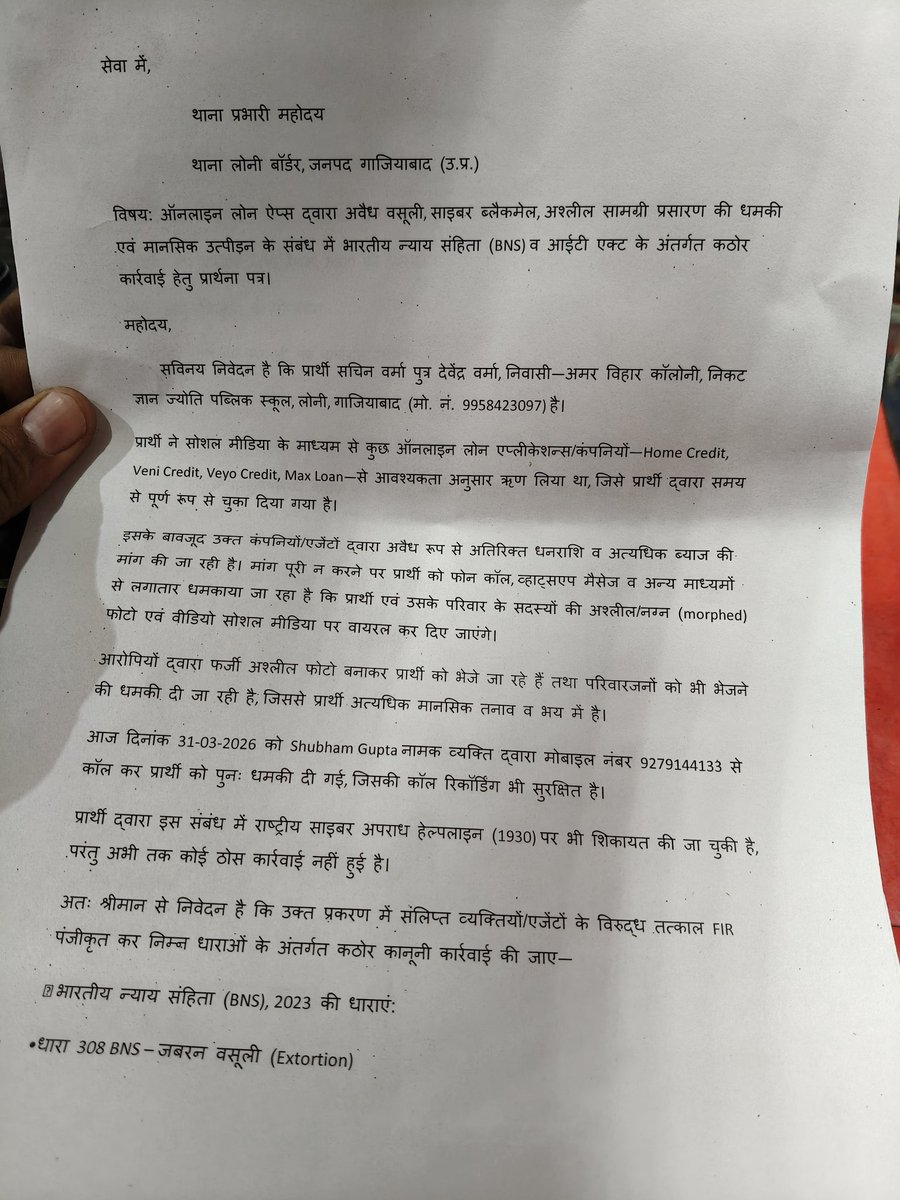 सेवा में,
थाना प्रभारी महोदय
थाना लोनी बॉर्डर, जनपद गाजियाबाद (उ.प्र.)
विषय: ऑनलाइन लोन ऐप्स द्वारा अवैध वसूली, साइबर ब्लैकमेल, अश्लील सामग्री प्रसारण की धमकी
एवं मानसिक उत्पीड़न के संबंध में भारतीय न्याय संहिता (BNS) व आईटी एक्ट के अंतर्गत कठोर
कार्रवाई हेतु प्रार्थना पत्र।
महोदय,
सविनय निवेदन है कि प्रार्थी सचिन वर्मा पुत्र देवेंद्र वर्मा, निवासी—अमर विहार कॉलोनी, निकट
ज्ञान ज्योति पब्लिक स्कूल, लोनी, गाजियाबाद (मो. नं. 9958423097) है।
प्रार्थी ने सोशल मीडिया के माध्यम से कुछ ऑनलाइन लोन एप्लीकेशन्स/कंपनियों—Home Credit,
Veni Credit, Veyo Credit, Max Loan—से आवश्यकता अनुसार ऋण लिया था, जिसे प्रार्थी द्वारा समय
से पूर्ण रूप से चुका दिया गया है।
इसके बावजूद उक्त कंपनियों/एजेंटों द्वारा अवैध रूप से अतिरिक्त धनराशि व अत्यधिक ब्याज की
मांग की जा रही है। मांग पूरी न करने पर प्रार्थी को फोन कॉल, व्हाट्सएप मैसेज व अन्य माध्यमों
से लगातार धमकाया जा रहा है कि प्रार्थी एवं उसके परिवार के सदस्यों की अश्लील/नग्न (morphed)
फोटो एवं वीडियो सोशल मीडिया पर वायरल कर दिए जाएंगे।
आरोपियों द्वारा फर्जी अश्लील फोटो बनाकर प्रार्थी को भेजे जा रहे हैं तथा परिवारजनों को भी भेजने
की धमकी दी जा रही है, जिससे प्रार्थी अत्यधिक मानसिक तनाव व भय में है।
आज दिनांक 31-03-2026 को Shubham Gupta नामक व्यक्ति द्वारा मोबाइल नंबर 9279144133 से
कॉल कर प्रार्थी को पुनः धमकी दी गई, जिसकी कॉल रिकॉर्डिंग भी सुरक्षित है।
प्रार्थी द्वारा इस संबंध में राष्ट्रीय साइबर अपराध हेल्पलाइन (1930) पर भी शिकायत की जा चुकी है,
परंतु अभी तक कोई ठोस कार्रवाई नहीं हुई है।
अतः श्रीमान से निवेदन है कि उक्त प्रकरण में संलिप्त व्यक्तियों/एजेंटों के विरुद्ध तत्काल FIR
पंजीकृत कर निम्न धाराओं के अंतर्गत कठोर कानूनी कार्रवाई की जाए—
भारतीय न्याय संहिता (BNS), 2023 की धाराएं:
•धारा 308 BNS – जबरन वसूली (Extortion)